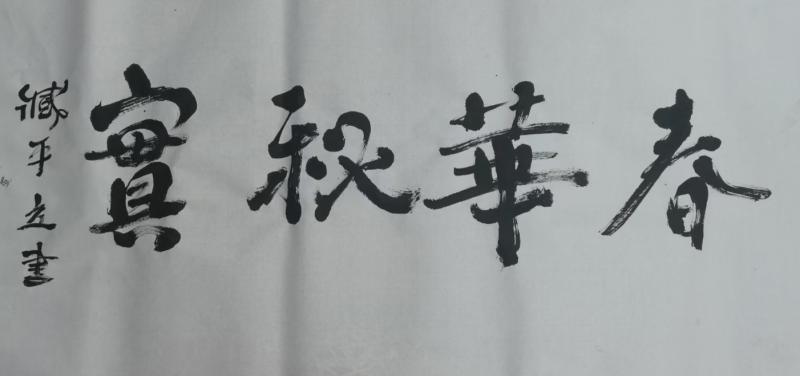 春華秋實
臧平立書